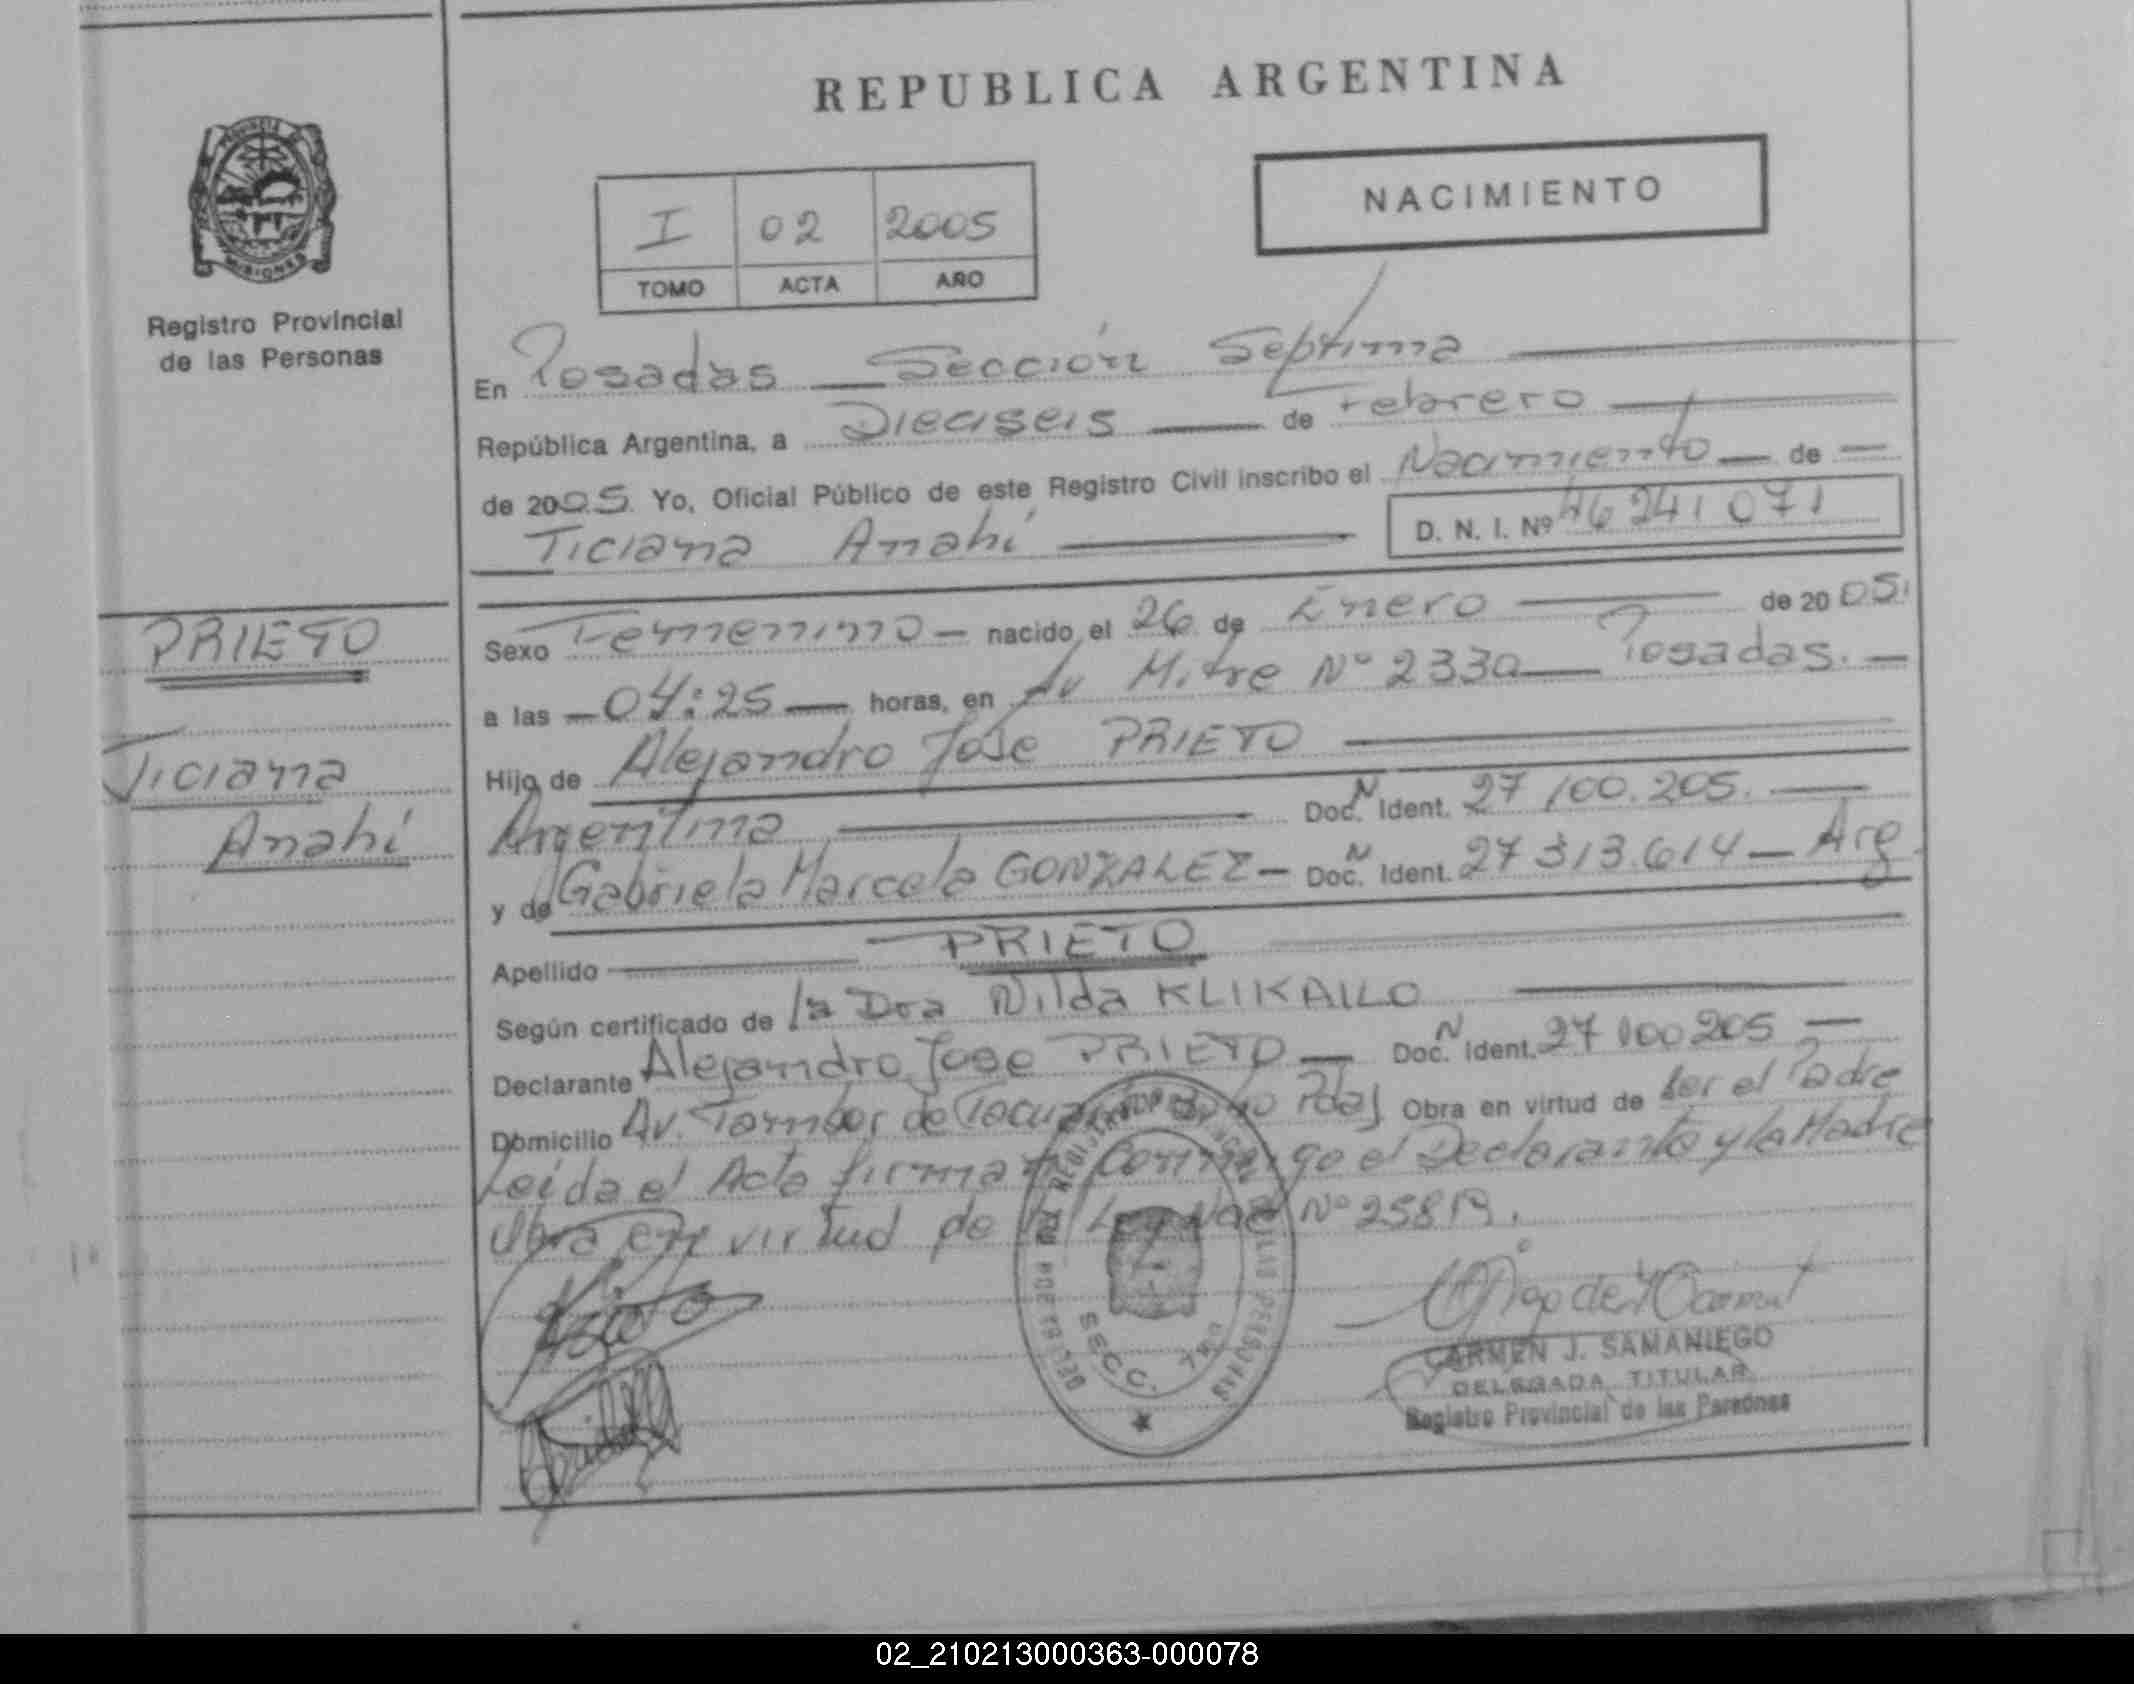 REPUBLICA ARGENTINA
PROVINCIA DE
MISIONES
Registro Provincial
de las Personas
I 02 2005
TOMO ACTA AÑO
NACIMIENTO
En Posadas Sección Septima
República Argentina, a Dieciseis de Febrero
de 2005. Yo, Oficial Público de este Registro Civil inscribo el Nacimiento de
Ticiana Anahí D. N. I. Nº 46241071
PRIETO
Ticiana
Anahí
Sexo Femenino nacido el 26 de Enero de 2005.
a las 04:25 horas, en Av Mitre Nº 2330 Posadas.
Hijo de Alejandro Jose PRIETO
Argentina Doc. N Ident. 27 100.205.
y de Gabriela Marcela GONZALEZ Doc. N Ident. 27 313.614 Arg.
Apellido PRIETO
Según certificado de la Dra Nilda KLIKAILO
Declarante Alejandro Jose PRIETO Doc. N Ident. 27 100 205
Domicilio Av. Tambor de Pdas Obra en virtud de ser el Padre
Leída el Acta firman Conmigo el Declarante y la Madre
Obra en virtud de la Ley Nac Nº 25819.
SECC. 7ma
CARMEN J. SAMANIEGO
DELEGADA TITULAR
Registro Provincial de las Personas
02_210213000363-000078